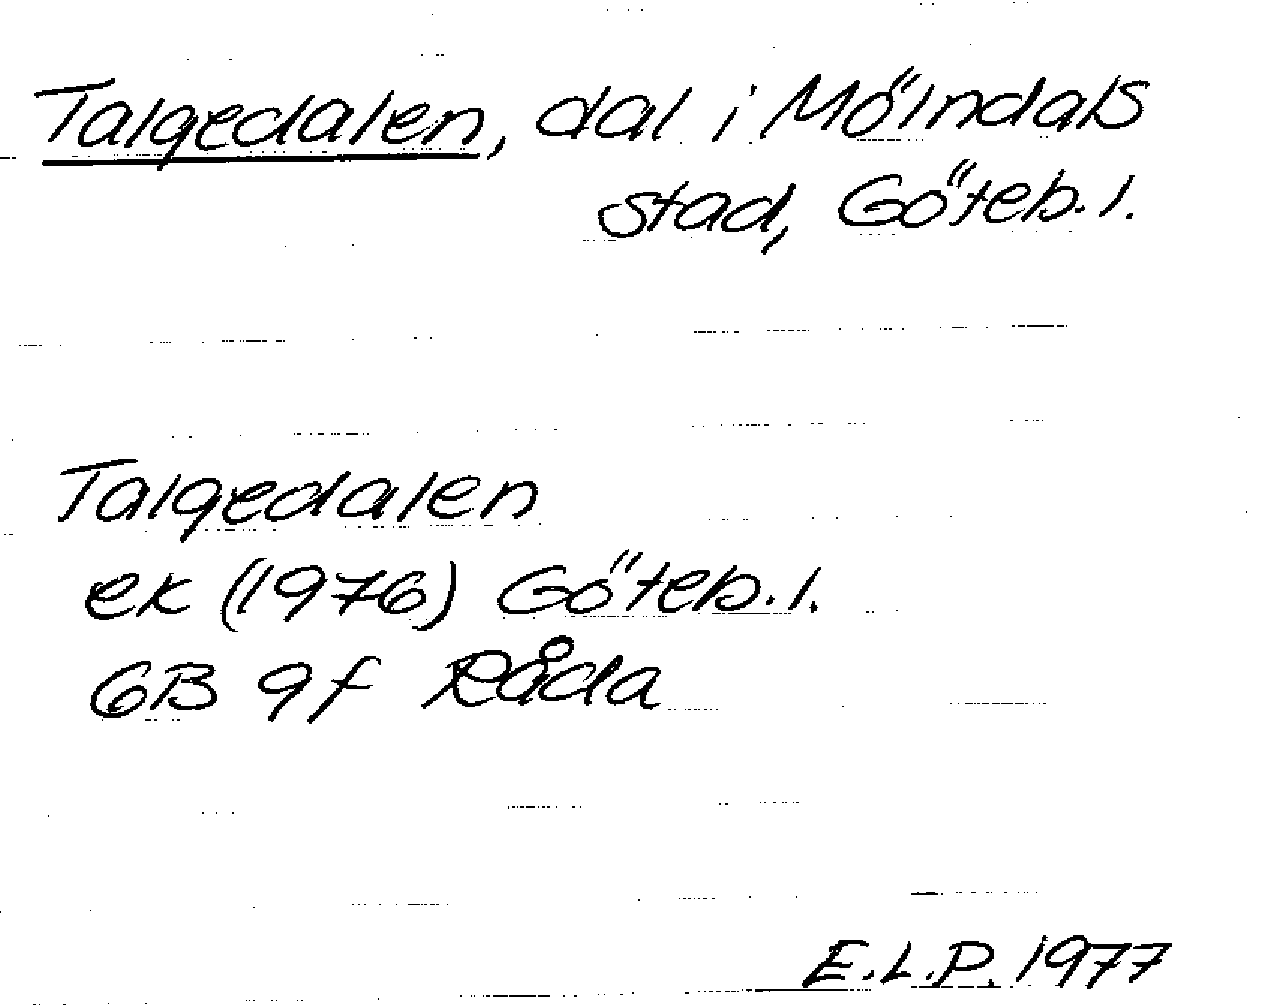 Talgedalen, dal i Mölndals
stad, Göteb. l.
Talgedalen
ek (1976) Göteb. l.
6B 9f Råda
E.L.P. 1977